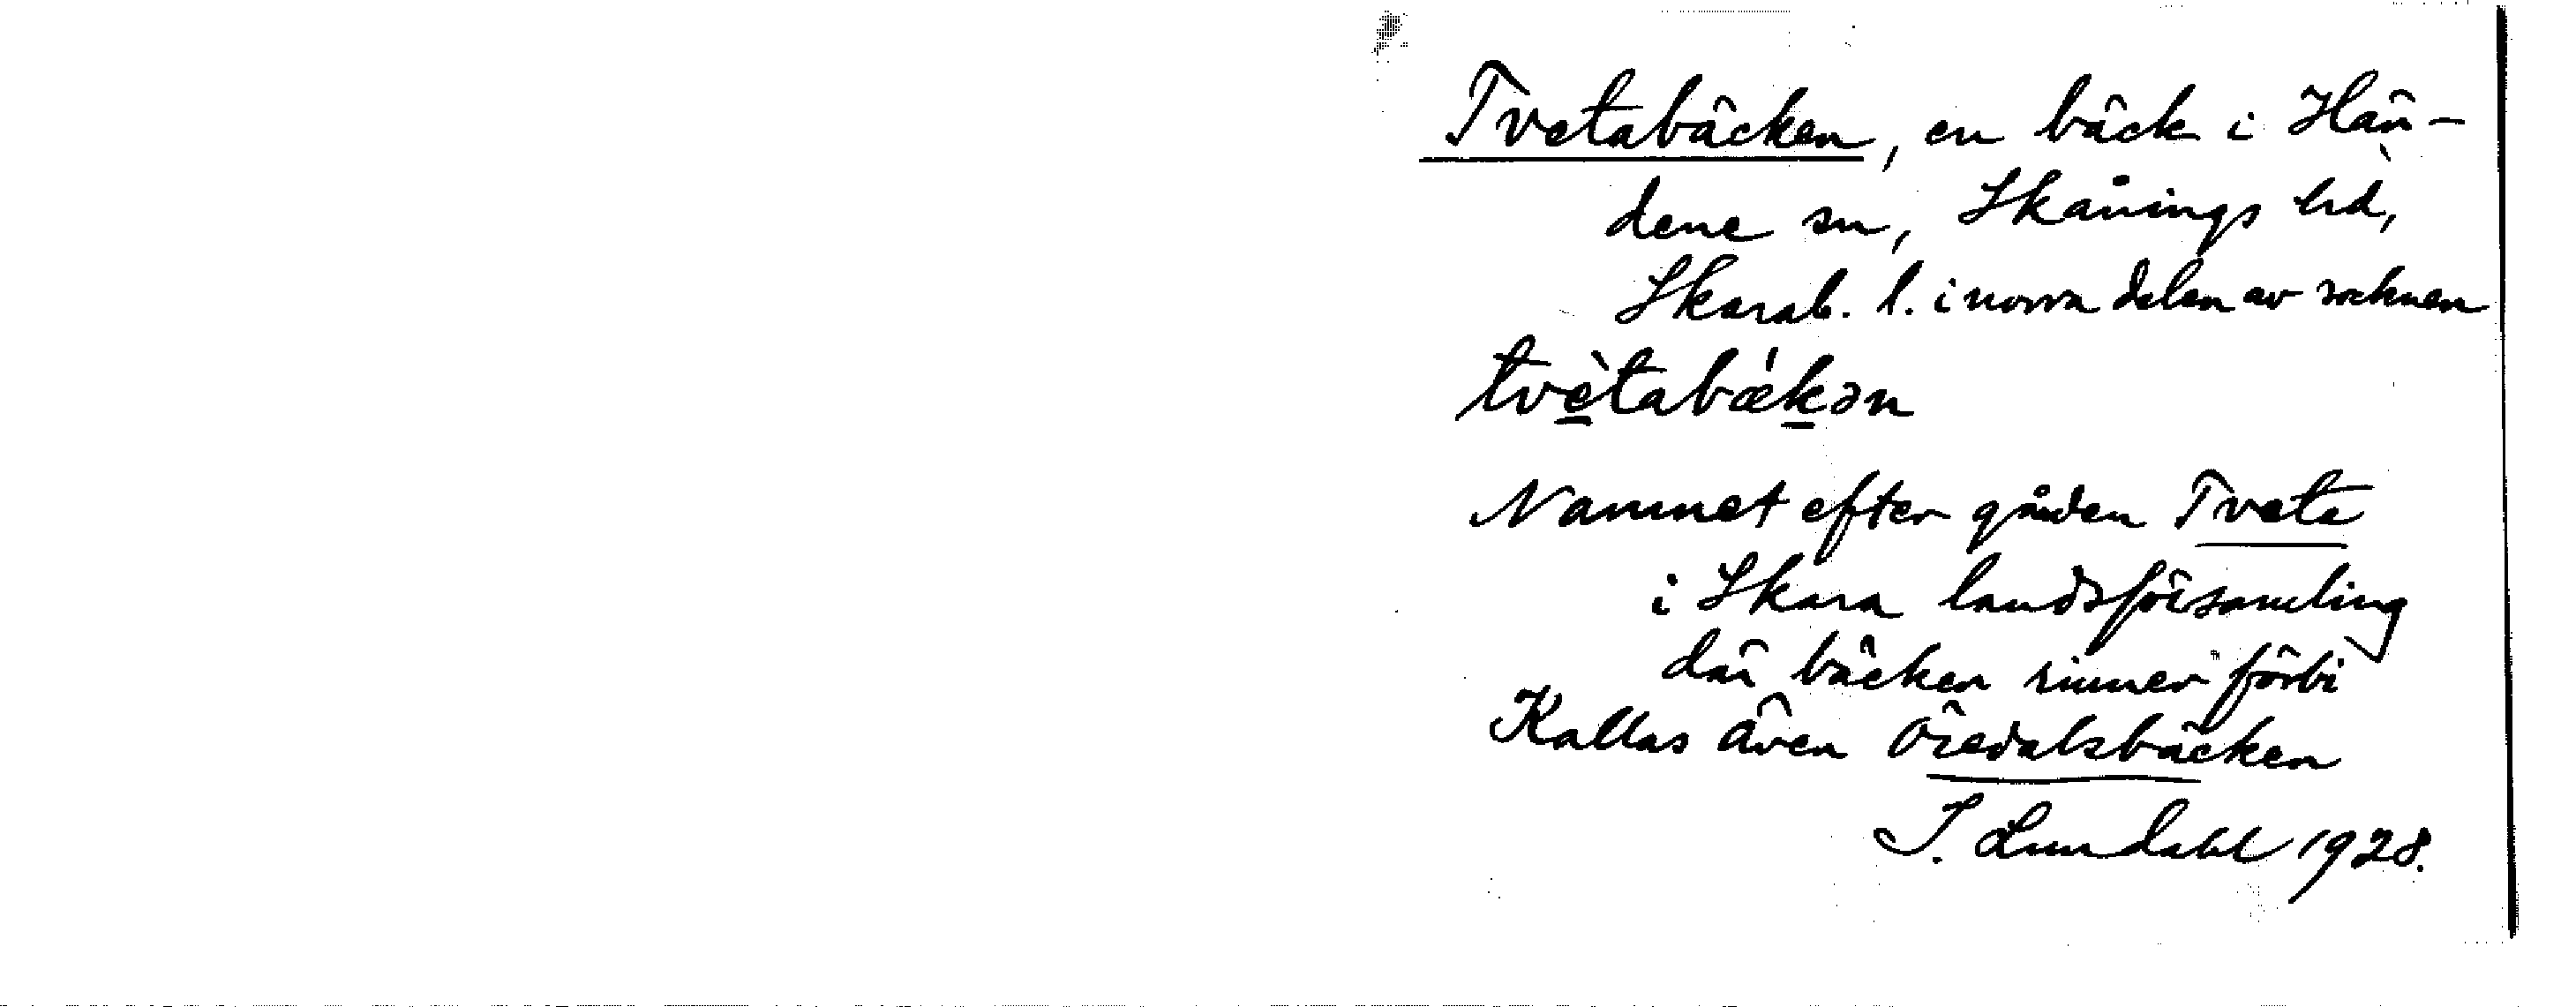 Tvetabäcken, en bäck i Hän-
dene sn, Skånings hd,
Skarab. l. i norra delen av socknen
tvètabǽkən
Namnet efter gården Tveta
i Skara landsförsamling
där bäcken rinner förbi
Kallas även Öredalsbäcken
I. Lundahl 1928.